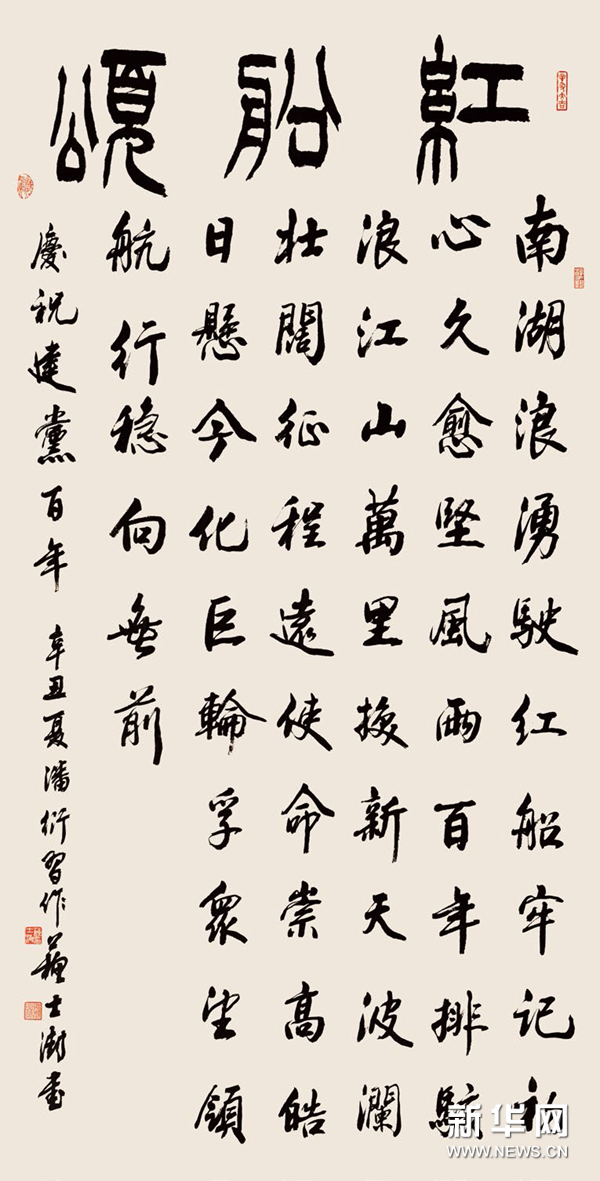 紅船頌
南湖浪湧駛红船牢记初
心久愈堅風雨百年排駭
浪江山萬里换新天波瀾
壮闊征程遠使命崇高皓
日懸今化巨輪孚衆望領
航行稳向無前
慶祝建黨百年 辛丑夏潘衍習作 蘇士澍書
新华网
WWW.NEWS.CN